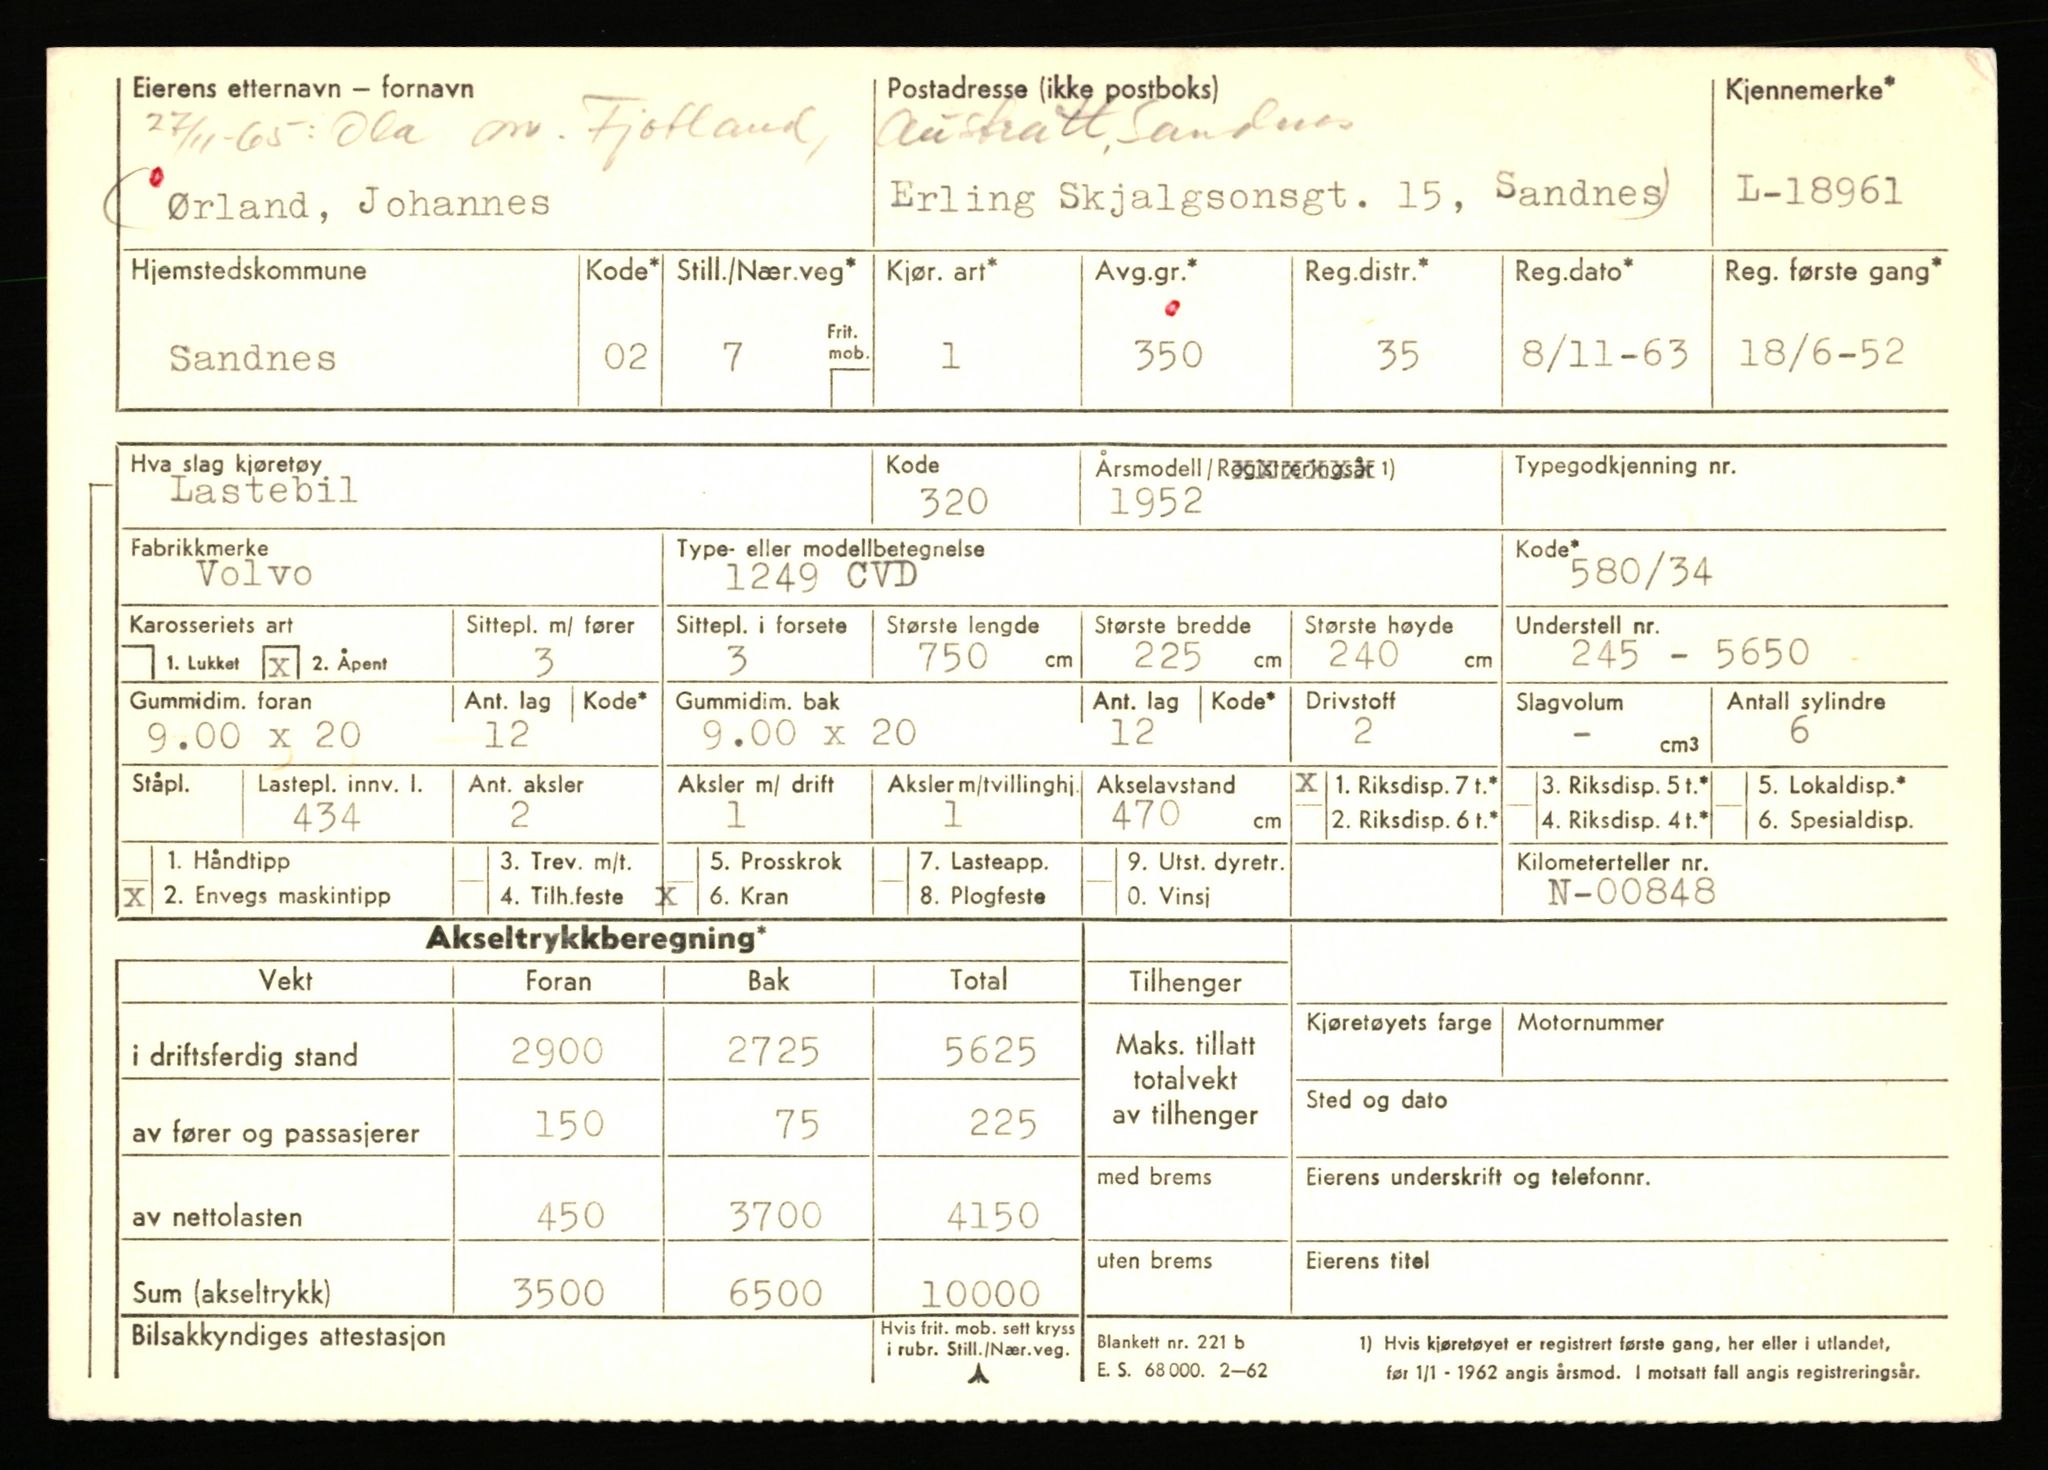 Eierens etternavn – fornavn Postadresse (ikke postboks) Kjennemerke*
27/11-65: Ola m. Fjotland, Austrått, Sandnes
(Ørland, Johannes Erling Skjalgsonsgt. 15, Sandnes) L-18961
Hjemstedskommune Kode* Still./Nær.veg* Kjør. art* Avg.gr.* Reg.distr.* Reg.dato* Reg. første gang*
Frit. mob.
Sandnes 02 7 1 350 35 8/11-63 18/6-52
Hva slag kjøretøy Kode Årsmodell/Registreringsår 1) Typegodkjenning nr.
Lastebil 320 1952
Fabrikkmerke Type- eller modellbetegnelse Kode*
Volvo 1249 CVD 580/34
Karosseriets art Sittepl. m/ fører Sittepl. i forsete Største lengde Største bredde Største høyde Understell nr.
1. Lukket X 2. Åpent 3 3 750 cm 225 cm 240 cm 245 - 5650
Gummidim. foran Ant. lag Kode* Gummidim. bak Ant. lag Kode* Drivstoff Slagvolum Antall sylindre
9.00 x 20 12 9.00 x 20 12 2 - cm3 6
Ståpl. Lastepl. innv. l. Ant. aksler Aksler m/ drift Aksler m/tvillinghj. Akselavstand X 1. Riksdisp. 7 t.* 3. Riksdisp. 5 t.* 5. Lokaldisp.*
434 2 1 1 470 cm 2. Riksdisp. 6 t.* 4. Riksdisp. 4 t.* 6. Spesialdisp.
1. Håndtipp 3. Trev. m/t. 5. Prosskrok 7. Lasteapp. 9. Utst. dyretr. Kilometerteller nr.
X 2. Envegs maskintipp 4. Tilh.feste X 6. Kran 8. Plogfeste 0. Vinsj N-00848
Akseltrykkberegning*
Vekt Foran Bak Total Tilhenger
Kjøretøyets farge Motornummer
i driftsferdig stand 2900 2725 5625 Maks. tillatt
totalvekt
av tilhenger
Sted og dato
av fører og passasjerer 150 75 225
med brems Eierens underskrift og telefonnr.
av nettolasten 450 3700 4150
uten brems Eierens titel
Sum (akseltrykk) 3500 6500 10000
Bilsakkyndiges attestasjon Hvis frit. mob. sett kryss
i rubr. Still./Nær.veg.
Blankett nr. 221 b 1) Hvis kjøretøyet er registrert første gang, her eller i utlandet,
E. S. 68 000. 2–62 før 1/1 - 1962 angis årsmod. I motsatt fall angis registreringsår.